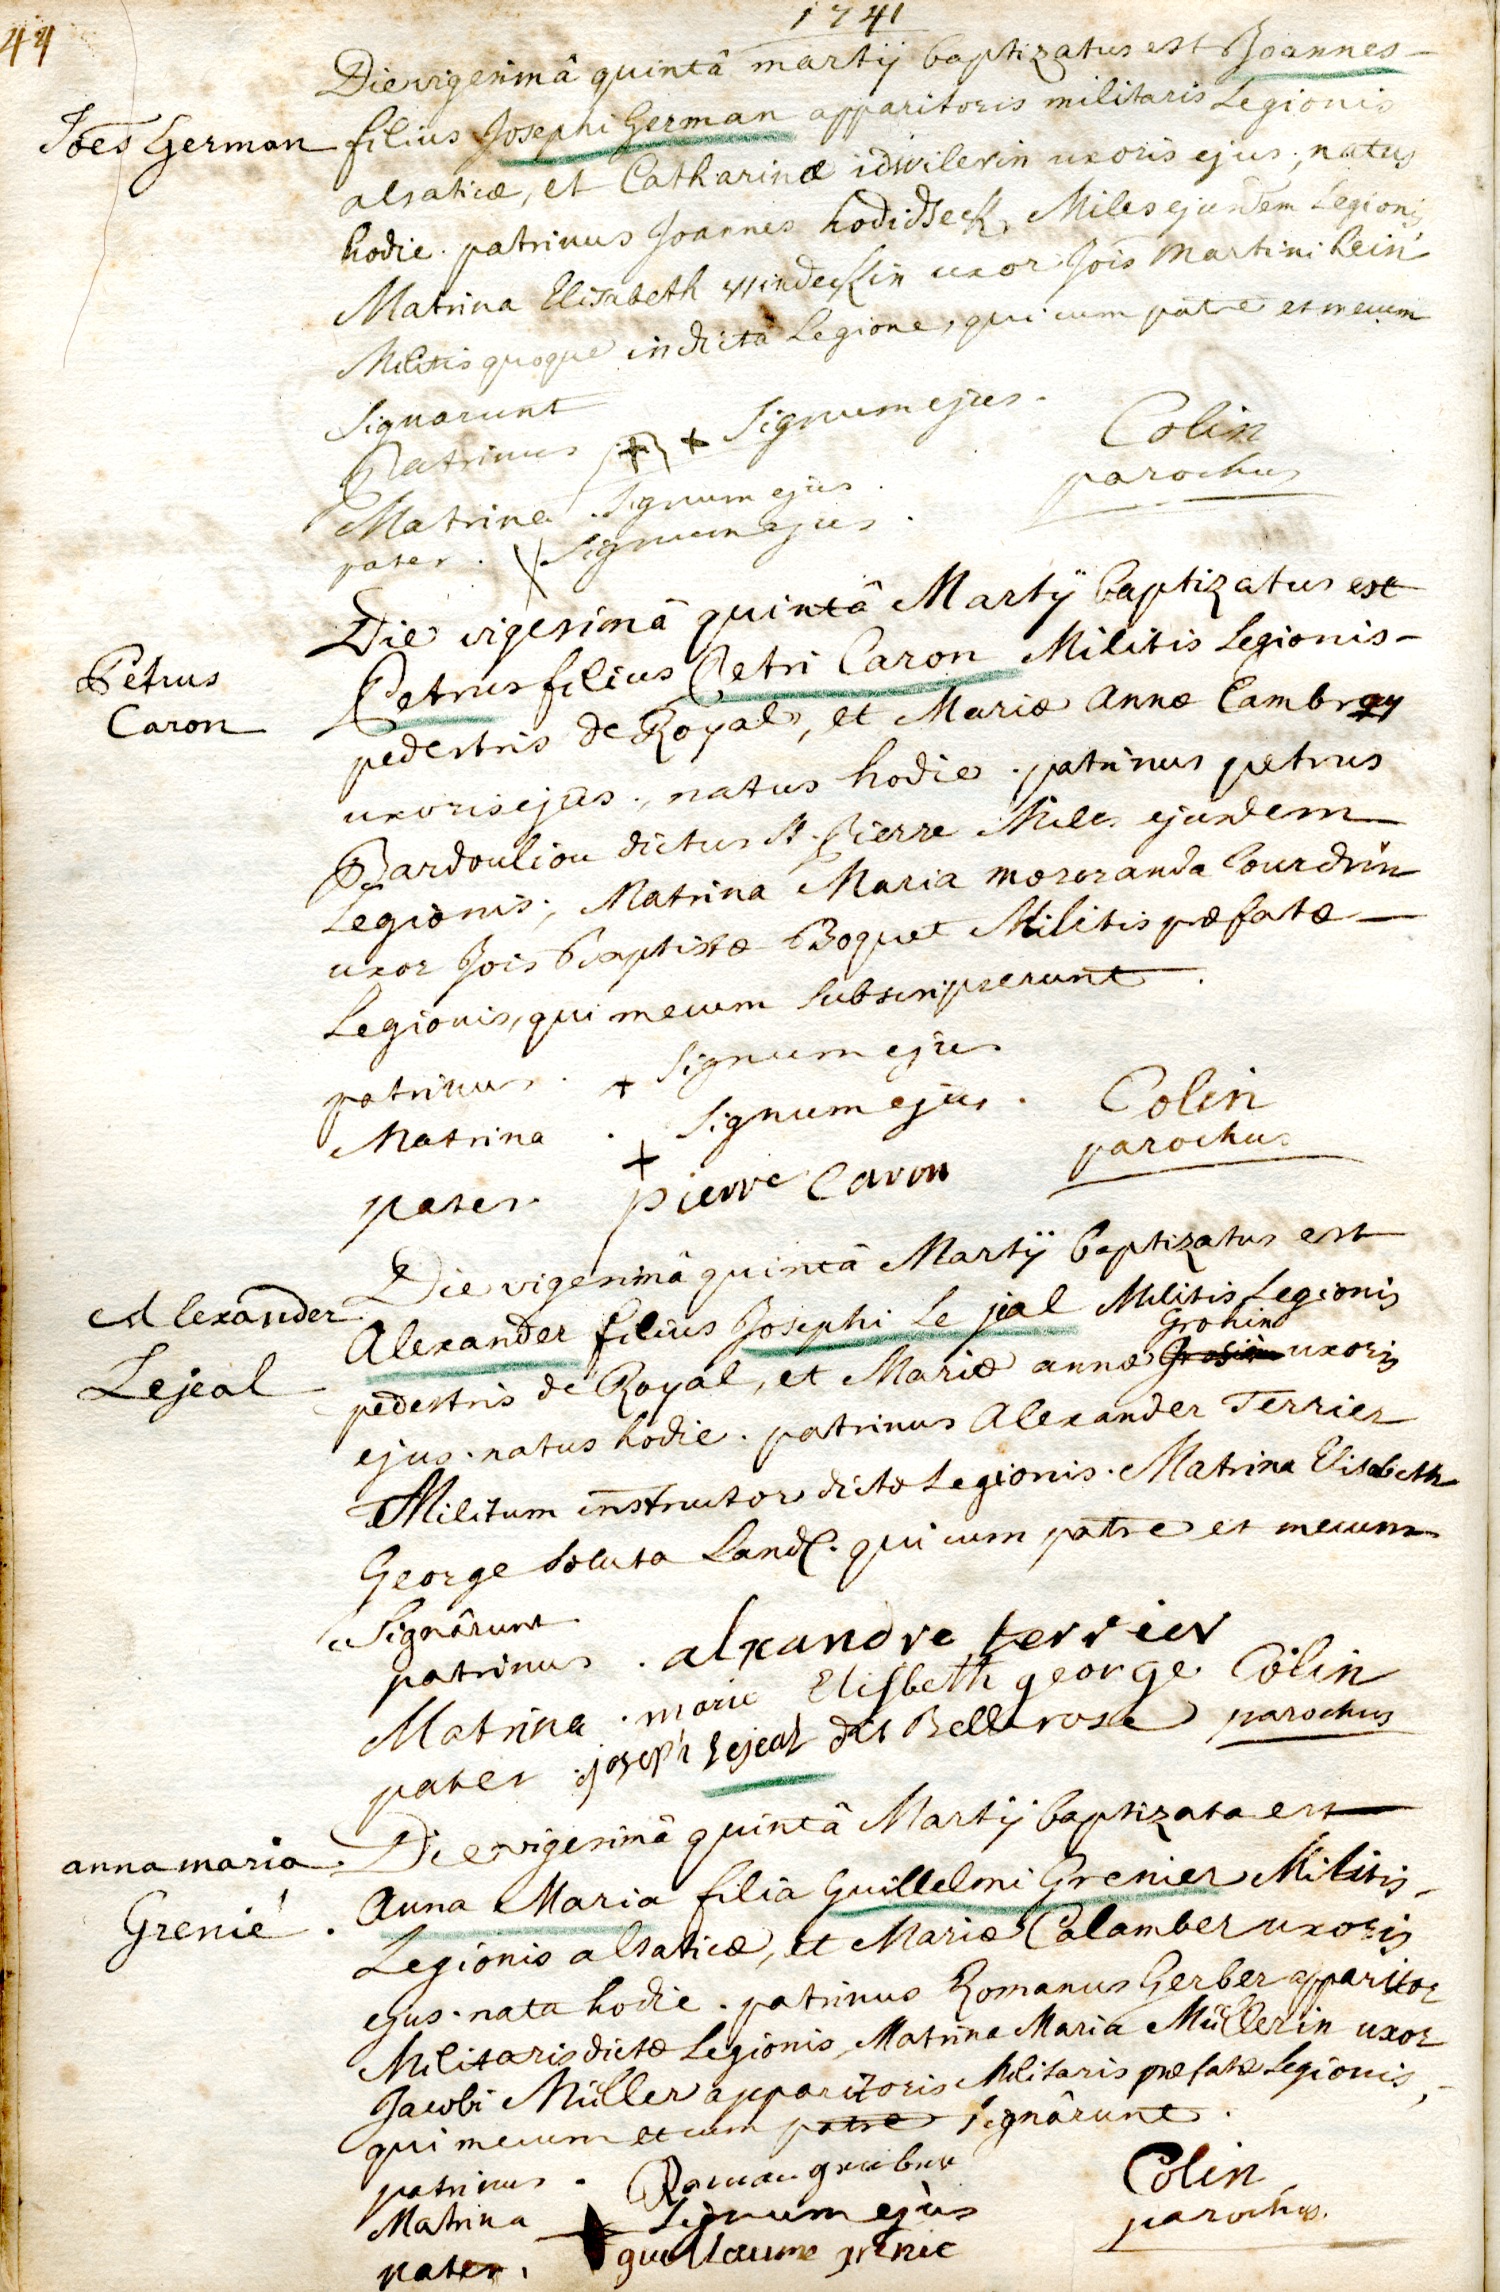 44
1741
Die vigesimâ quintâ martij baptizatus est Joannes
Joes German
filius Josephi German apparitoris militaris Legionis
alsaticæ, et Catharinæ idwilerin uxoris ejus, natus
hodie. patrinus Joannes Miles ejusdem Legionis
Matrina Elisabeth Windecklin uxor Jois Martini hein
Militis quoque in dicta Legione, qui cum patre et mecum
Signarunt
Patrinus + + Signum ejus.
Colin
parochus
Matrina. Signum ejus.
pater. Signum ejus.
Die vigesimâ quintâ Martÿ baptizatus est
Petrus
Caron
Petrus filius Petri Caron Militis Legionis
pedestris de Royal, et Mariæ Annæ Cambray
uxoris ejus, natus hodie. patrinus petrus
Bardouliou dictus St. Pierre Miles ejusdem
Legionis; Matrina Maria Courdrin
uxor Jois Baptistæ Boquet Militis præfatæ
Legionis, qui mecum subscripserunt.
patrinus. + Signum ejus
Matrina. + Signum ejus.
Colin
parochus
pater. pierre Caron
Die vigesimâ quintâ Martÿ baptizatus est
Alexander
Lejeal
Alexander filius Josephi Le jeal Militis Legionis
Grohin
pedestris de Royal, et Mariæ annæ uxoris
ejus. natus hodie. patrinus Alexander Terrier
Militum instructor dictæ Legionis. Matrina Elisabeth
George soluta Land. qui cum patre et mecum
Signârunt
patrinus. alxandre terrier
Matrina. marie Elisbeth george
Colin
parochus
pater. joseph Lejeal dit Bellerose
Die vigesimâ quintâ Martij baptizata est
anna maria
Grenié.
Anna Maria filia Guillelmi Grenier Militis
Legionis alsaticæ, et Mariæ Calamber uxoris
ejus. nata hodie. patrinus Romanus Gerber apparitor
Militaris dictæ Legionis, Matrina Maria Müllerin uxor
Jacobi Müller apparitoris Militaris præfatæ Legionis,
qui mecum et cum patre signârunt.
patrinus. Roman
Matrina + Signum ejus
Colin
parochus.
pater. guillaume grenie